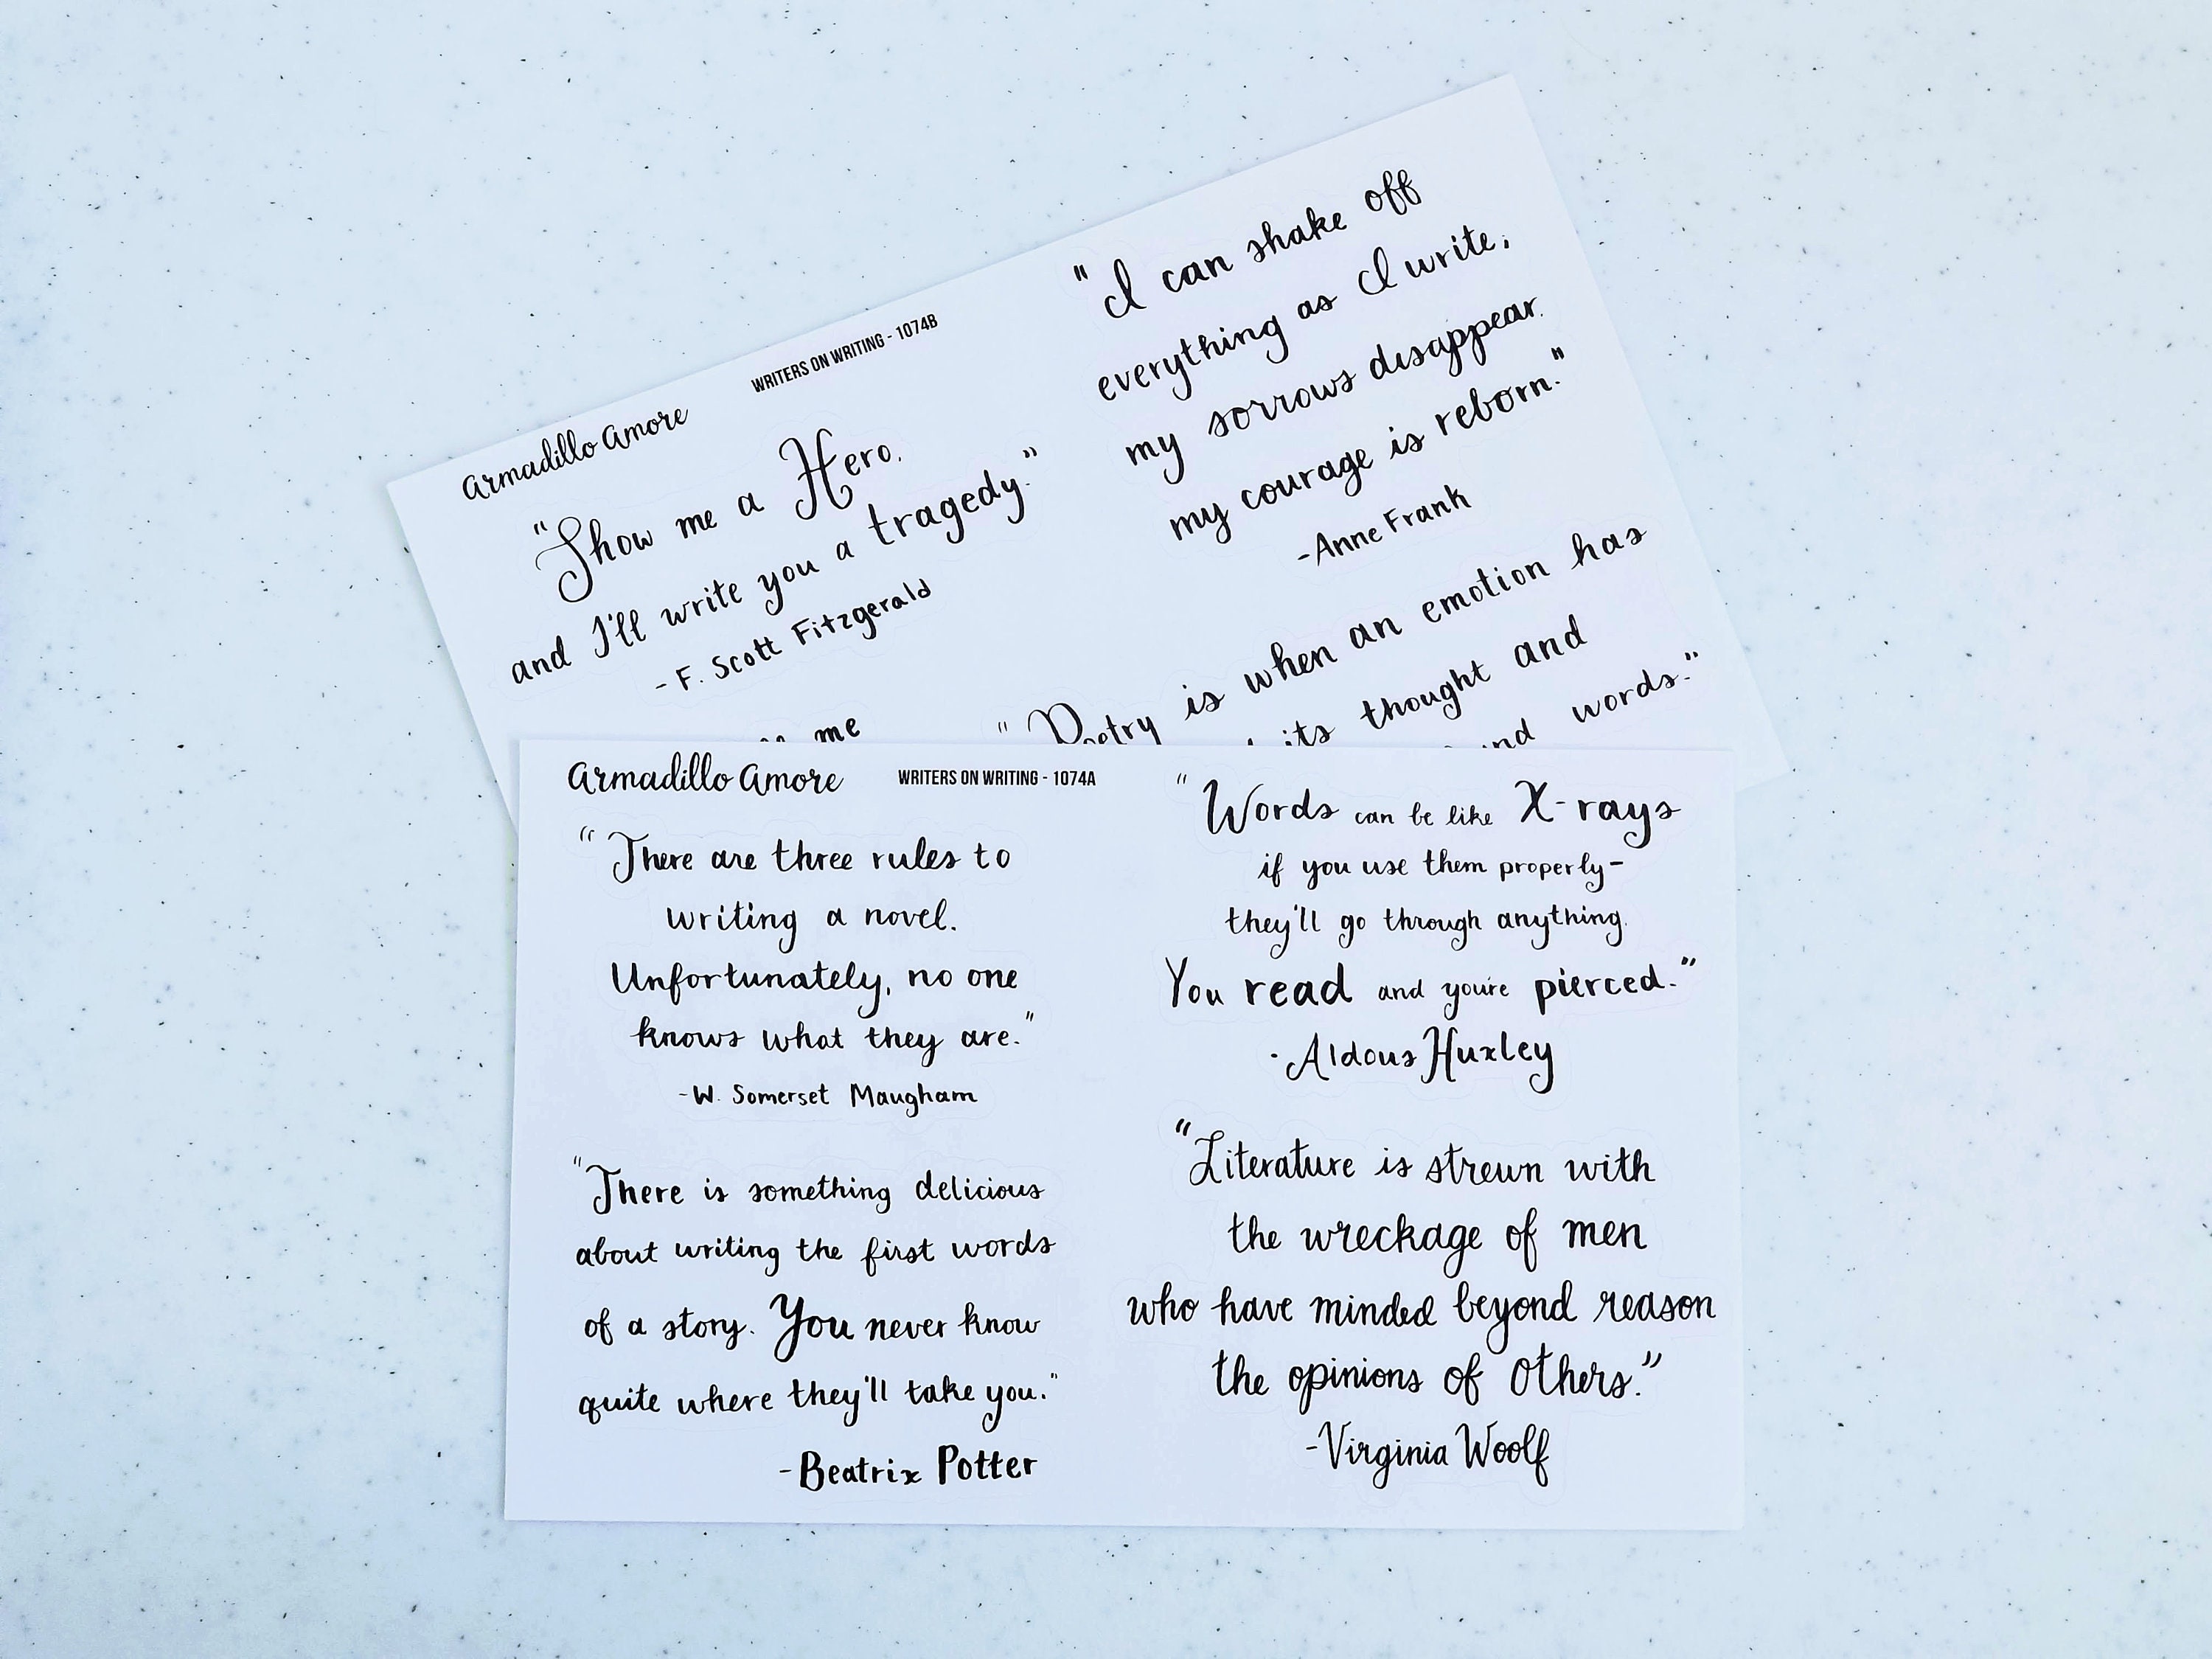 Armadillo Amore
WRITERS ON WRITING - 1074B
"Show me a Hero,
and I'll write you a tragedy."
- F. Scott Fitzgerald
me
"I can shake off
everything as I write;
my sorrows disappear,
my courage is reborn."
-Anne Frank
"Poetry is when an emotion has
its thought and
words."
Armadillo Amore
WRITERS ON WRITING - 1074A
"There are three rules to
writing a novel.
Unfortunately, no one
knows what they are."
-W. Somerset Maugham
"There is something delicious
about writing the first words
of a story. You never know
quite where they'll take you."
-Beatrix Potter
"Words can be like X-rays
if you use them properly-
they'll go through anything.
You read and you're pierced."
-Aldous Huxley
"Literature is strewn with
the wreckage of men
who have minded beyond reason
the opinions of others."
-Virginia Woolf